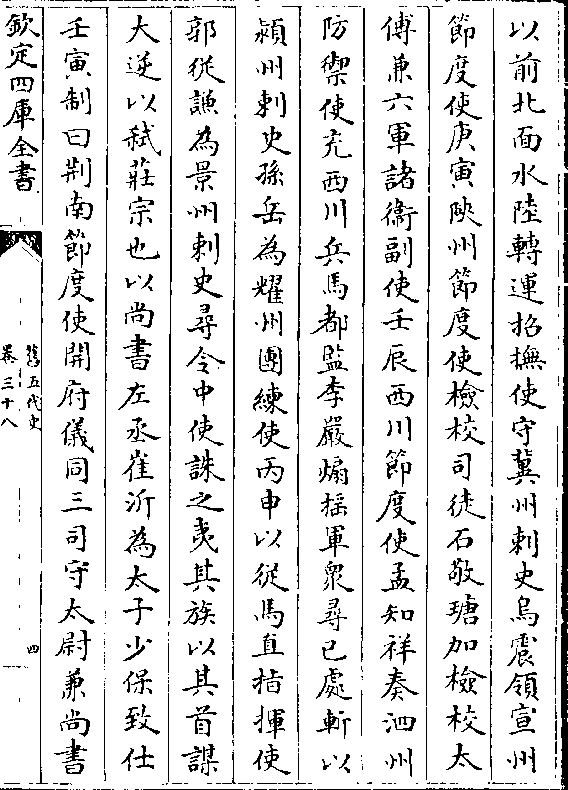 以前北面水陸轉運招撫使守冀州刺史烏震領宣州
節度使庚寅陜州節度使檢校司徒石敬瑭加檢校太
傅兼六軍諸衛副使壬辰西川節度使孟知祥奏泗州
防禦使充西川兵馬都監李嚴煽揺軍衆尋已處斬以
潁州刺史孫岳為耀州團練使丙申以從馬直指揮使
郭從謙為景州刺史尋令中使誅之夷其族以其首謀
大逆以弒莊宗也以尚書左丞崔沂為太子少保致仕
壬寅制曰荆南節度使開府儀同三司守太尉兼尚書
欽定四庫全書
舊五代史
卷三十八
四